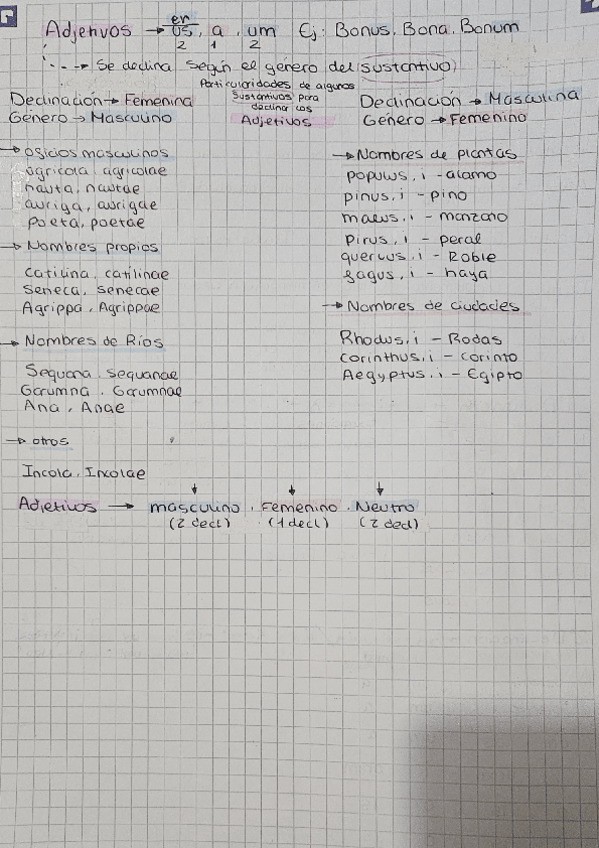 Adjetivos → er/us, a, um Ej: Bonus, Bona, Bonum
2 1 2
--→ Se declina según el género del sustantivo
Particularidades de algunos
sustantivos para
declinar los
Adjetivos
Declinación → Femenina
Género → Masculino
→ oficios masculinos
agricola, agricolae
nauta, nautae
auriga, aurigae
Poeta, poetae
→ Nombres propios
Catilina, catilinae
Seneca, senecae
Agrippa, Agrippae
→ Nombres de Ríos
Sequana, sequanae
Garumna, Garumnae
Ana, Anae
→ otros
Incola, Incolae
Declinación → Masculina
Género → Femenino
→ Nombres de plantas
populus, i - alamo
pinus, i - pino
malus, i - manzano
Pirus, i - peral
quercus, i - Roble
fagus, i - haya
→ Nombres de ciudades
Rhodus, i - Rodas
Corinthus, i - corinto
Aegyptus, i - Egipto
Adjetivos → masculino, Femenino, Neutro
(2 decl) (1 decl) (2 decl)